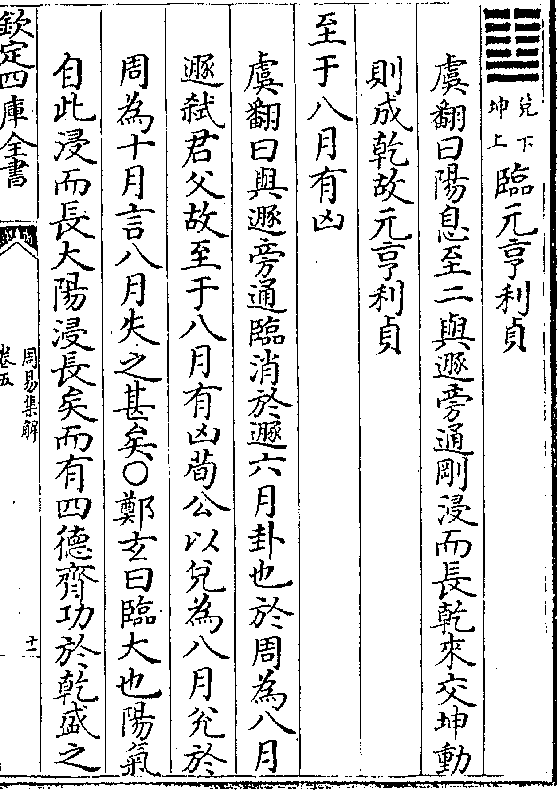 兌下
坤上
臨元亨利貞
虞翻曰陽息至二與遯旁通剛浸而長乾來交坤動
則成乾故元亨利貞
至于八月有凶
虞翻曰與遯旁通臨消於遯六月卦也於周為八月
遯弑君父故至于八月有凶荀公以兌為八月兊於
周為十月言八月失之甚矣○鄭玄曰臨大也陽氣
自此浸而長大陽浸長矣而有四德齊功於乾盛之
欽定四庫全書
周易集解
卷五
十二